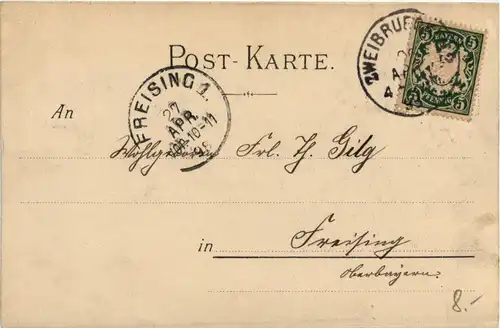 POST-KARTE.
ZWEIBRUE
BAYERN
5 5
FREISING 1.
27
APR
10-11
98
An
Wohlgeboren Frl. Th. Gilg
in Freising
Oberbayern.
8.-